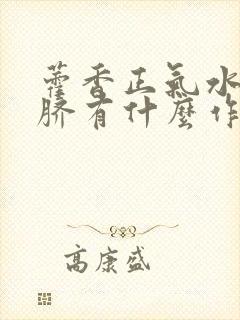 藿香正氣水
臍有什麼作
高康盛